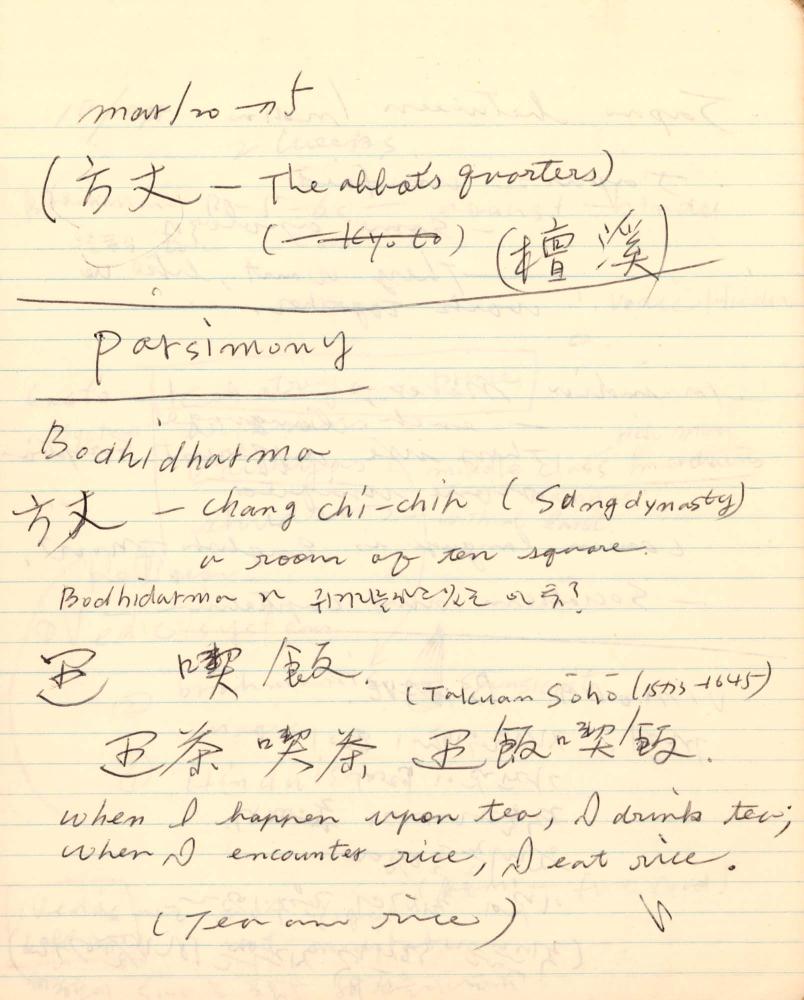 mar/20 → 5
(方丈 — The abbot's quarters)
(— Kyoto) (檀溪)
Parsimony
Bodhidharma
方丈 — chang chi-chih (Sung dynasty)
a room of ten square.
Bodhidarma 가
喫飯.
(Takuan Sōhō (1573-1645)
茶喫茶 飯喫飯.
when I happen upon tea, I drink tea;
when I encounter rice, I eat rice.
(Tea and rice)